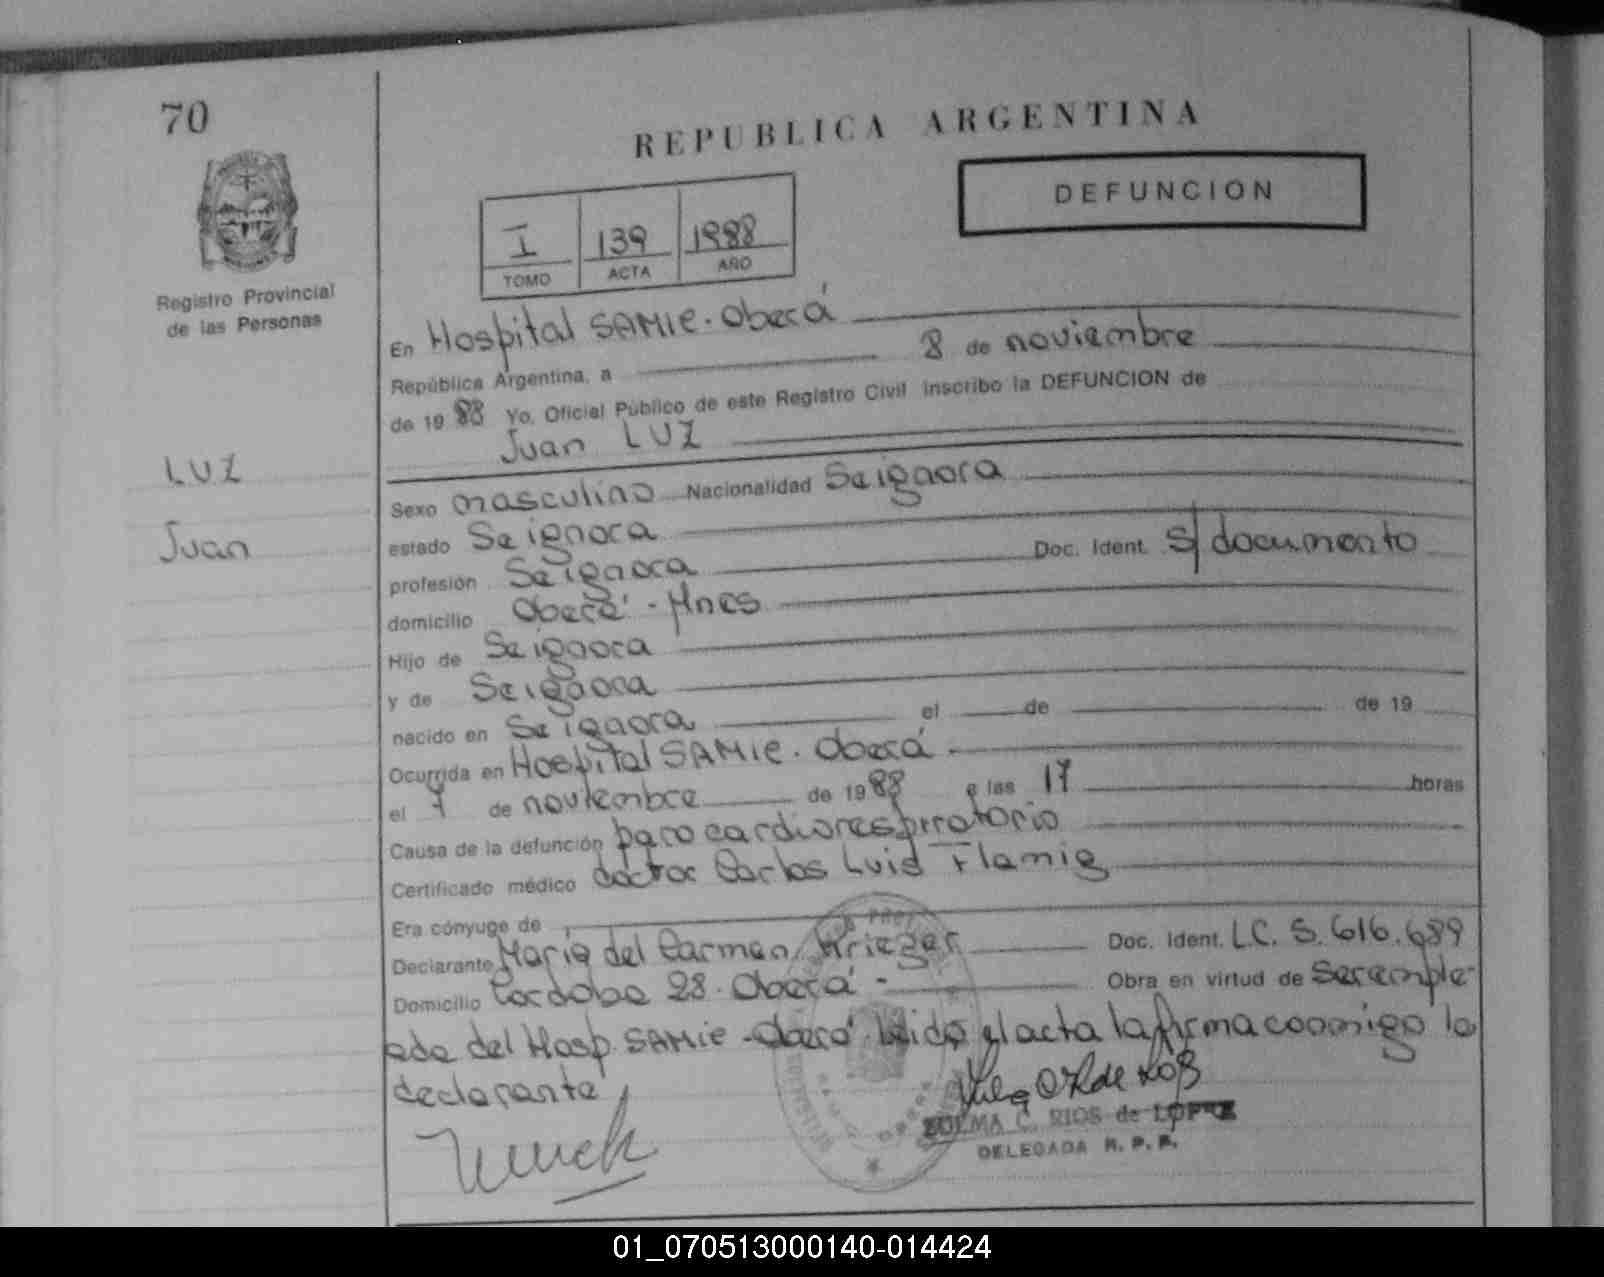 70
REPUBLICA ARGENTINA
DEFUNCION
I 139 1988
TOMO ACTA AÑO
Registro Provincial
de las Personas
En Hospital SAMIC. Oberá
República Argentina, a 8 de noviembre
de 1988 Yo, Oficial Público de este Registro Civil inscribo la DEFUNCION de
Juan LUZ
LUZ
Juan
Sexo masculino Nacionalidad Se ignora
estado Se ignora
Doc. Ident. S/documento
profesión Se ignora
domicilio Oberá - Mnes
Hijo de Se ignora
y de Se ignora
nacido en Se ignora el de de 19
Ocurrida en Hospital SAMIC. Oberá
el 7 de noviembre de 1988 a las 17 horas
Causa de la defunción paro cardiorespiratorio
Certificado médico doctor Carlos Luis Flamig
Era cónyuge de
Declarante Maria del Carmen Krieger Doc. Ident. LC. 5.616.689
Domicilio Cordoba 28. Oberá - Obra en virtud de Ser emple
ada del Hosp. SAMIC - Oberá. Leida el acta la firma conmigo la
declarante
ZULMA C. RIOS de LOPEZ
DELEGADA R. P. P.
01_070513000140-014424